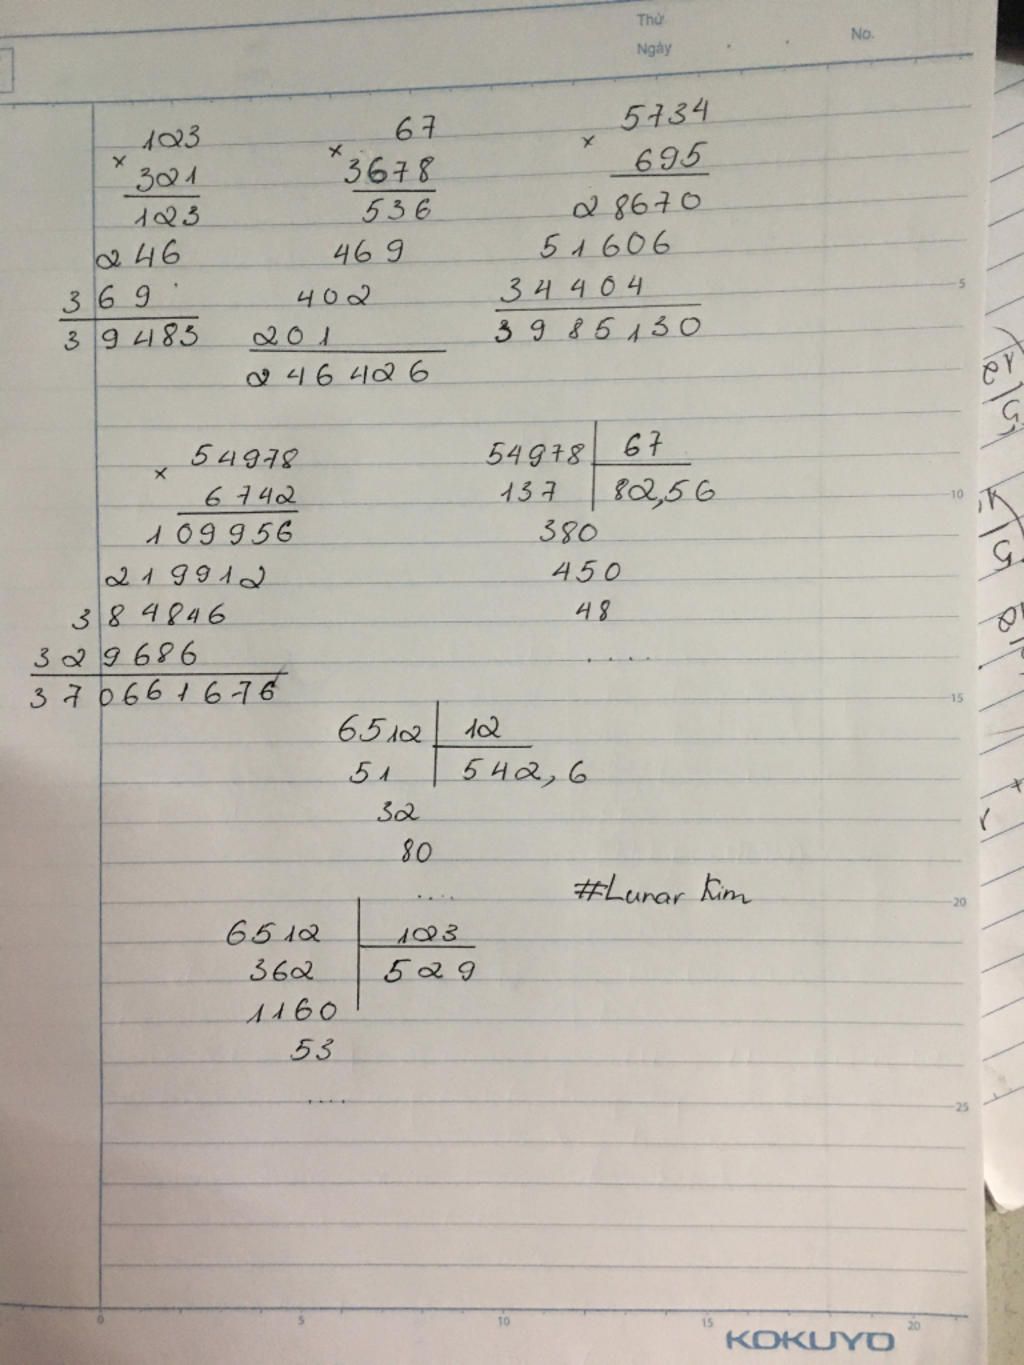 Thứ
Ngày . . No.
123
×
321
123
246
369
39483
67
×
3678
536
469
402
201
246426
5734
×
695
28670
51606
34404
3985130
5
54978
×
6742
109956
219912
384846
329686
370661676
54978 67
137 82,56
380
450
48
.....
10
15
6512 12
51 542,6
32
80
....
#Lunar Kim
20
6512 123
362 529
1160
53
....
25
0 5 10 15 20
KOKUYO